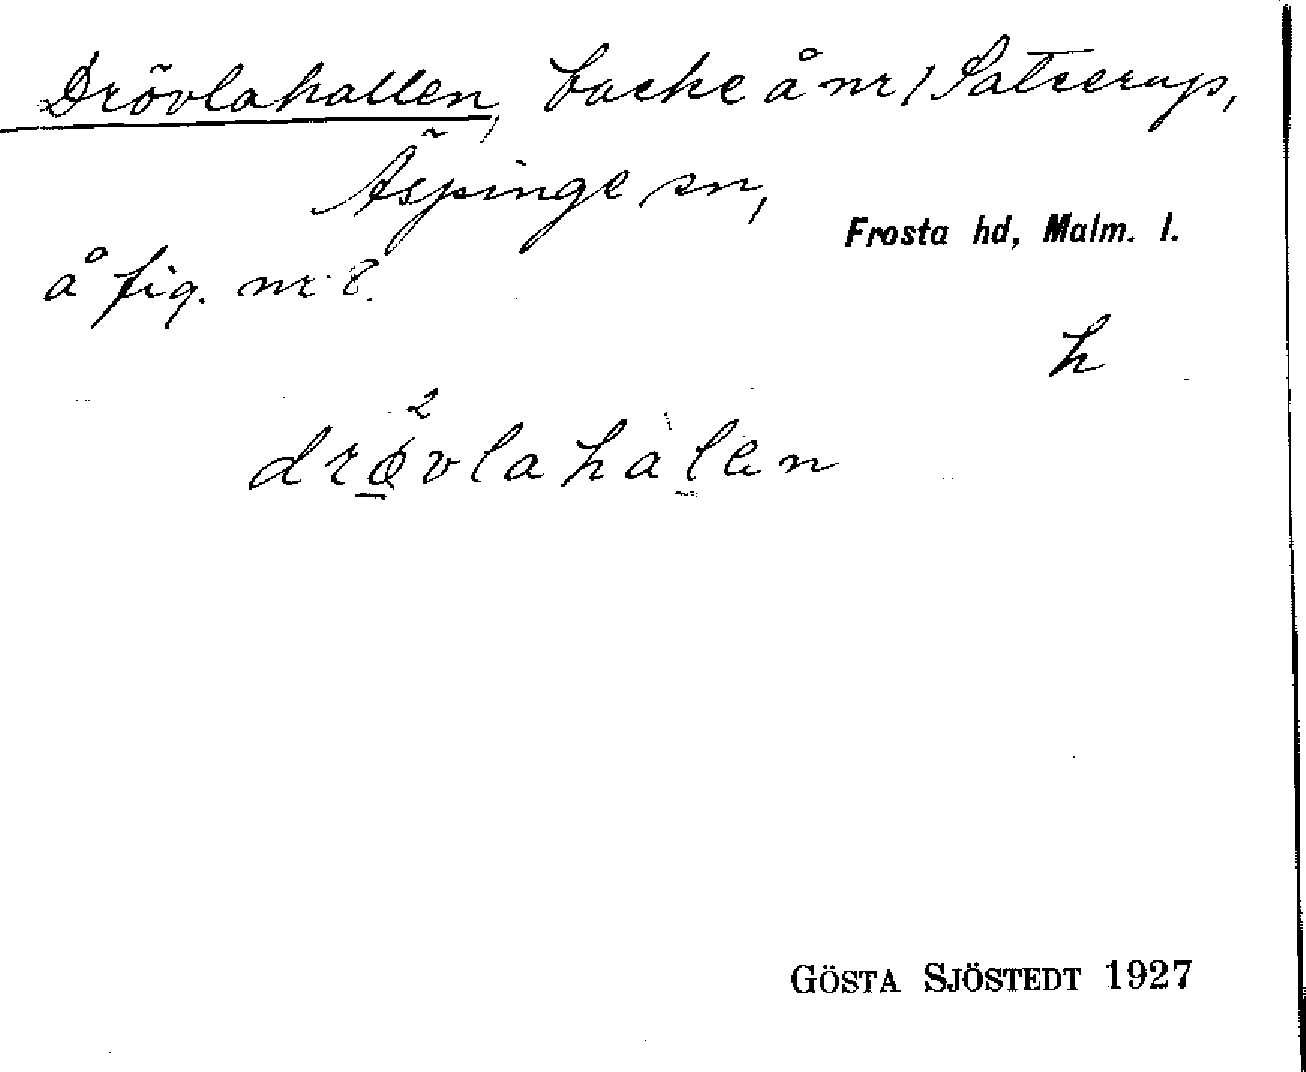 Drövlahallen, backe å nr 1 Satserup,
Äspinge sn,
Frosta hd, Malm. l.
å fig. nr 8.
h
drø̱²vlahal̠en
GÖSTA SJÖSTEDT 1927